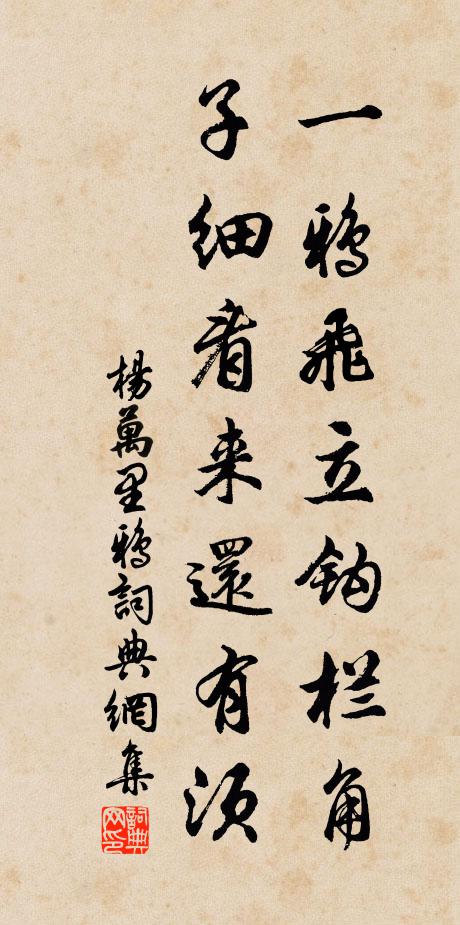 一鸦飞立钩栏角
子细看来還有须
楊萬里鸦詞典網集
詞典网印